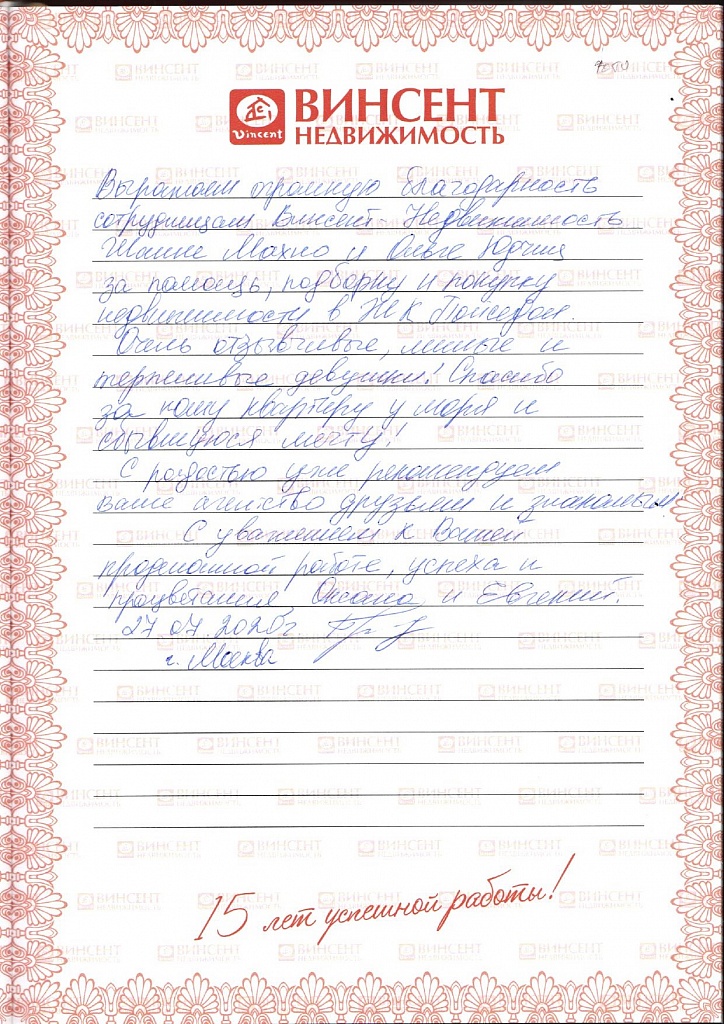 Vincent
ВИНСЕНТ
НЕДВИЖИМОСТЬ
Выражаем огромную благодарность
сотрудницам Винсент-Недвижимость
Жанне Махно и Ольге
за помощь, подборку и покупку
недвижимости в ЖК Посейдон.
Очень отзывчивые, милые и
терпеливые девушки! Спасибо
за нашу квартиру у моря и
сбывшуюся мечту!
С радостью уже рекомендуем
ваше агентство друзьям и знакомым!
С уважением к Вашей
проделанной работе, успеха и
процветания, Оксана и Евгений.
27 07 2020г
г. Москва
15 лет успешной работы!